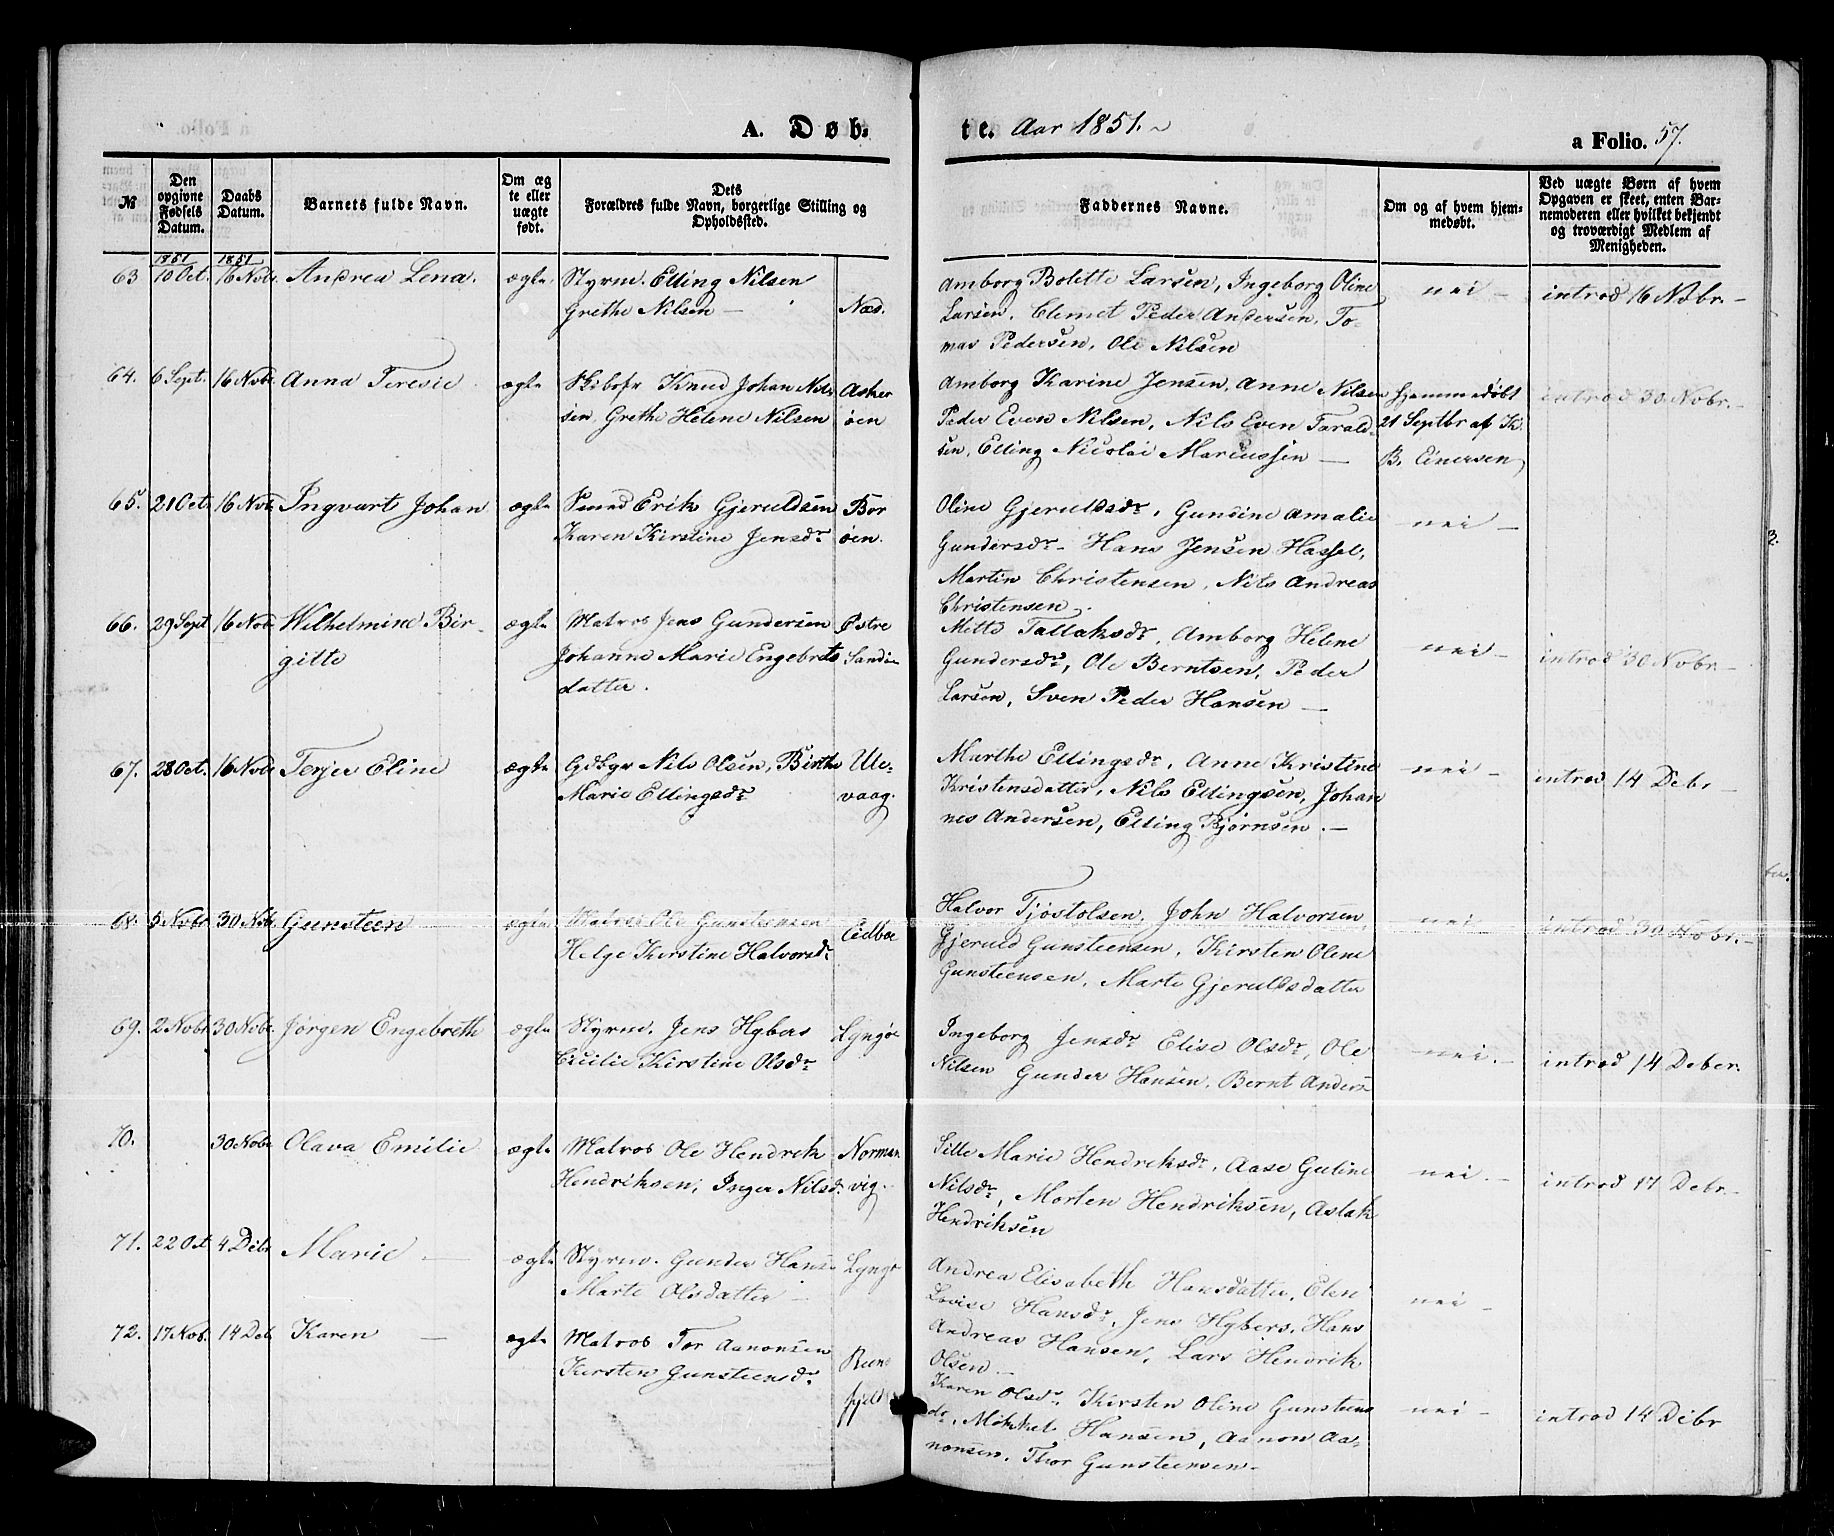 A. Døb-
te. Aar 1851.
a Folio. 57.
№
Den opgivne Fødsels Datum.
Daabs Datum.
Barnets fulde Navn.
Om æg te eller uægte født.
Dets Forældres fulde Navn, borgerlige Stilling og Opholdssted.
Faddernes Navne.
Om og af hvem hjem- medøbt.
Ved uægte Børn af hvem Opgaven er skeet, enten Bar- nemoderen eller hvilket bekjendt og troværdigt Medlem af Menigheden.
1851 1851
63 10 Oct. 16 Nobr. Andrea Lena. ægte Styrm. Elling Nilsen
Grethe Nilsen — Næs.
Amborg Bolette Larsen, Ingeborg Oline
Larsen, Clemet Peder Andersen, To-
mas Pedersen, Ole Nilsen
nei — introd 16 Nobr. —
64. 6 Sept. 16 Nobr. Anna Teresie ægte Skibsfr Knud Johan Nil-
sen, Grethe Helene Nilsen Asker
øen
Amborg Karine Jensen, Anne Nilsen
Peder Even Nilsen, Nils Even Tarald-
sen, Elling Nicolai Marcussen —
Hjemmedøbt
21 Septbr af K.
B. Einersen
introd 30 Nobr. —
65. 21 Oct. 16 Nobr. Ingvart Johan ægte Smed Erik Gjeruldsen
Karen Kirstine Jensdr Bor
øen.
Oline Gjeruldsdr, Gundine Amalie
Gundersdr — Hans Jensen Hassel,
Martin Christensen, Nils Andreas
Christensen.
nei —
66. 29 Sept 16 Nobr. Wilhelmine Bir-
gitte ægte Matros Jens Gundersen
Johanne Marie Engebrets
datter. Østre
Sandø
Mette Tallaksdr, Amborg Helene
Gundersdr, Ole Berntsen, Peder
Larsen, Sven Peder Hansen —
nei — introd 30 Nobr. —
67. 28 Oct. 16 Nobr Terjer Eline ægte Gdbgr Nils Olsen, Birthe
Marie Ellingsdr Ule-
vaag.
Marthe Ellingsdr, Anne Kristine
Kristensdatter, Nils Ellingsen, Johan
nes Andersen, Elling Bjørnsen. —
nei — introd 14 Debr —
68. 5 Nobr 30 Nobr. Gunsteen ægte Matros Ole Gunsteensen
Helge Kirstine Halvorsdr Eidboe
Halvor Tjøstolsen, John Halvorsen,
Gjeruld Gunsteensen, Kirsten Olene
Gunsteensen, Marte Gjeruldsdatter
nei — introd 30 Nobr. —
69. 2 Nobr. 30 Nobr. Jørgen Engebreth ægte Styrm. Jens Hybers
Cicilie Kirstine Olsdr Lyngør
Ingeborg Jensdr Elise Olsdr, Ole
Nilsen Gunder Hansen, Bernt Anders-
nei. — introd 14 Deber.
70. 30 Nobr Olava Emilie ægte Matros Ole Hendrik
Hendriksen, Inger Nilsd. Norman
vig.
Sille Marie Hendriksdr, Aase Guline
Nilsdr, Morten Hendriksen, Aslak
Hendriksen
nei. — introd 17 Debr. —
71. 22 Oct 4 Debr Marie — ægte Styrm. Gunder Hans-
Marte Olsdatter — Lyngø
Andrea Elisabeth Hansdatter, Elen
Lovise Hansdr, Jens Hybers, Hans
Andreas Hansen, Lars Hendrik
Olsen —
nei —
72. 17 Nob. 14 Deb. Karen — ægte Matros Tor Aanonsen
Kirsten Gunsteensdr
fjeld
Karen Olsdr, Kirsten Oline Gunsteens
dr, Mikkel Hansen, Aanon Aa-
nonsen, Thor Gunsteensen —
nei — introd 14 Debr